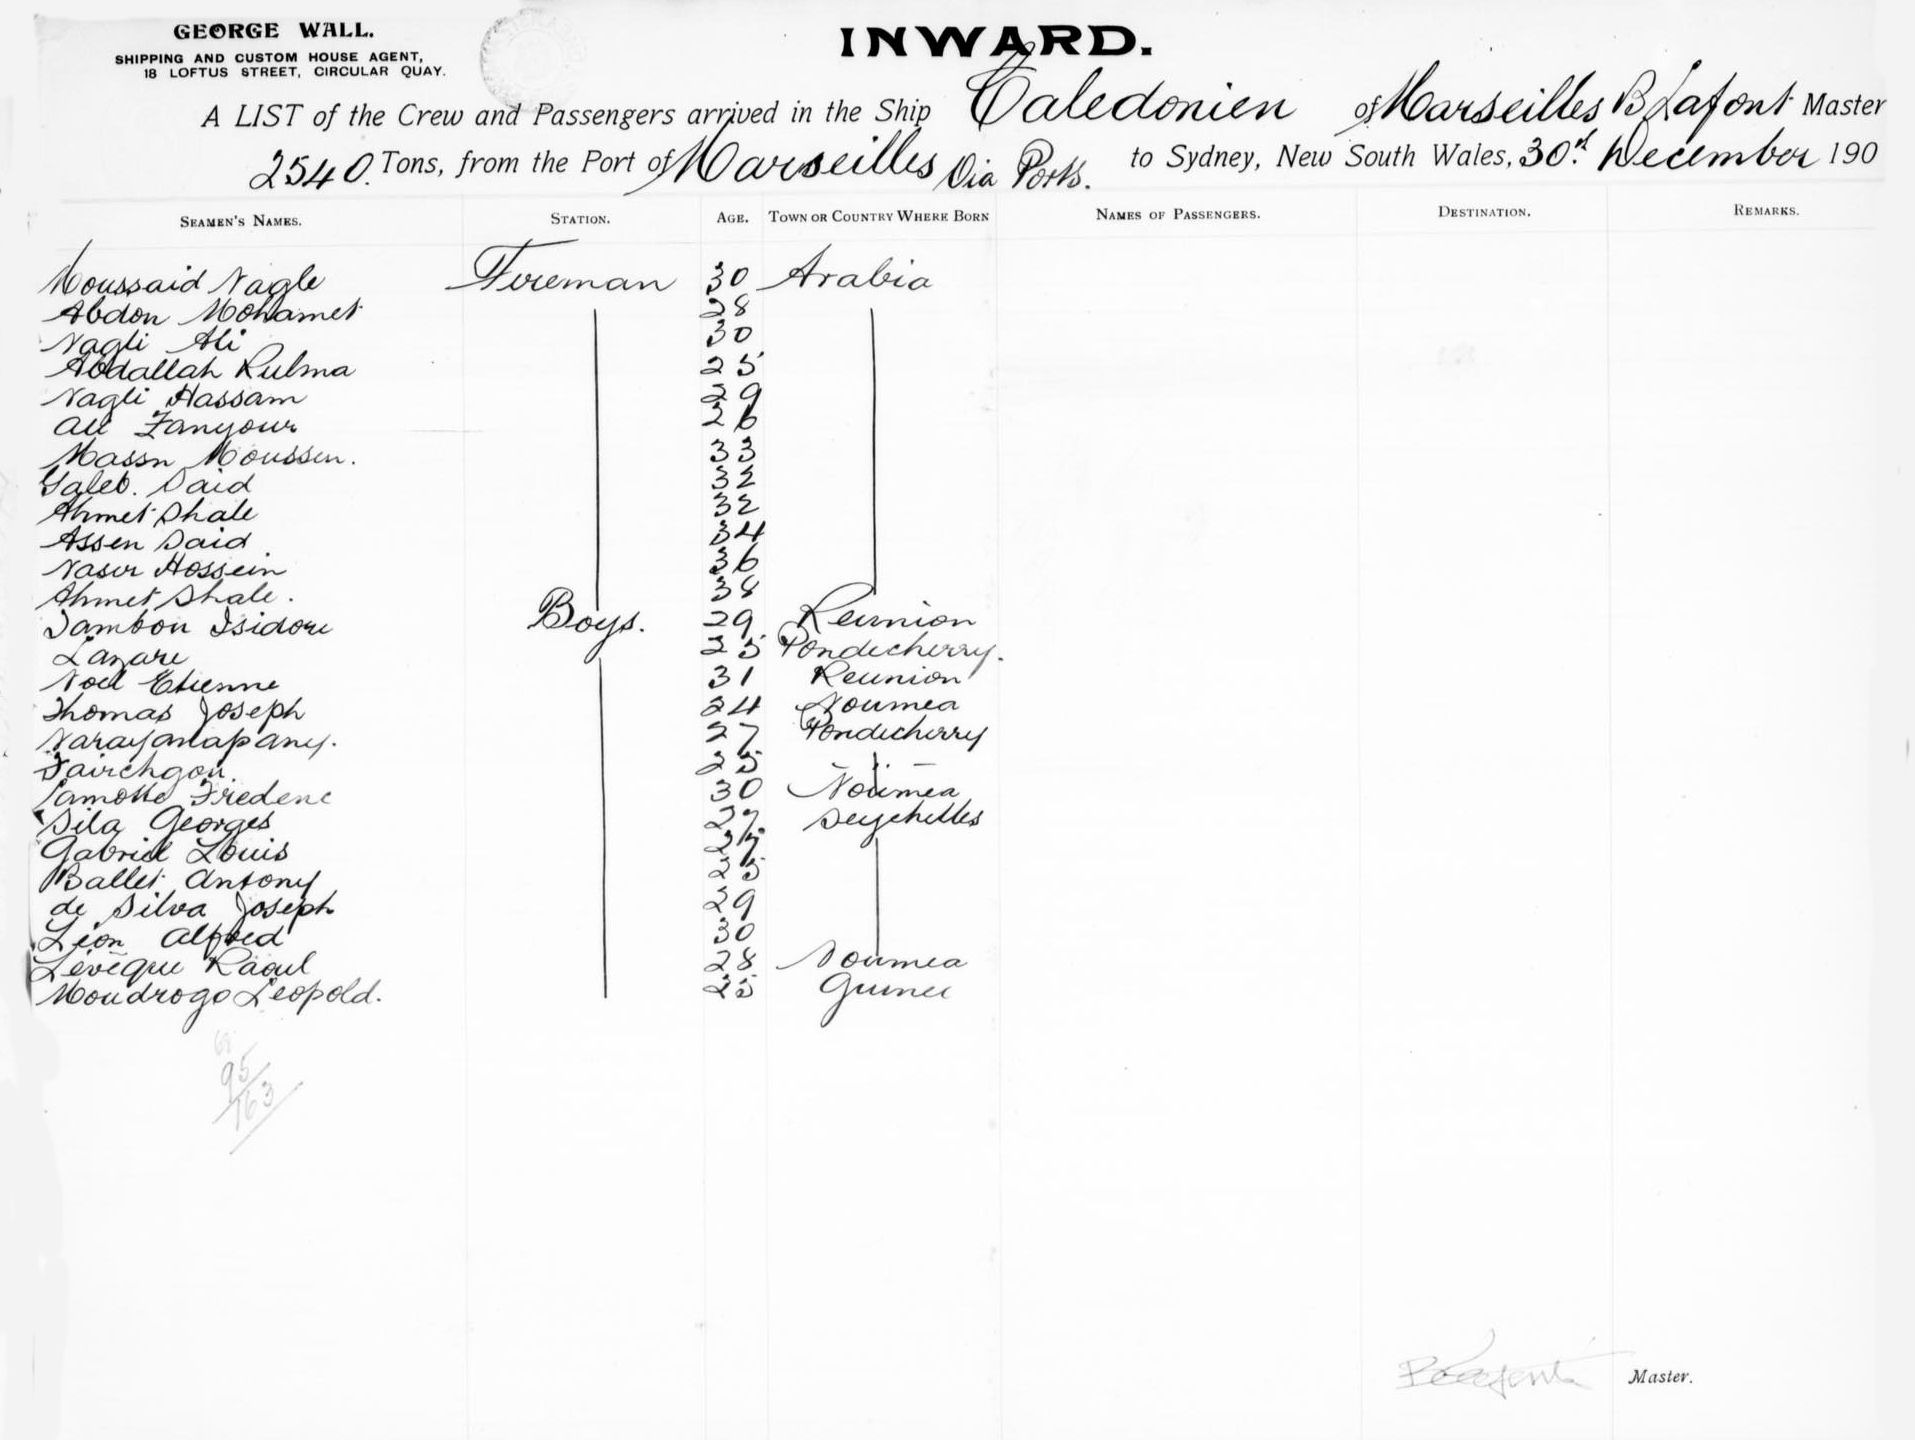 GEORGE WALL.
SHIPPING AND CUSTOM HOUSE AGENT,
18 LOFTUS STREET, CIRCULAR QUAY.
INWARD.
A LIST of the Crew and Passengers arrived in the Ship Caledonien of Marseilles B Lafont Master
2540. Tons, from the Port of Marseilles Via Ports. to Sydney, New South Wales, 30.d December 190
SEAMEN'S NAMES. STATION. AGE. TOWN OR COUNTRY WHERE BORN NAMES OF PASSENGERS. DESTINATION. REMARKS.
Moussaid Nagle Fireman 30 Arabia
Abdon Mohamet 28
Nagli Ali 30
Abdallah Rulma 25
Nagli Hassam 29
Ali Zanyour 26
Massn Moussen. 33
Galeb. Said 32
Ahmet Shale 32
Assen Said 34
Nasur Hossein 36
Ahmet Shale. 38
Jambou Isidore Boys. 29 Reunion
Lazare 25 Pondicherry.
Noel Etienne 31 Reunion
Thomas Joseph 24 Noumea
Narayanapany. 27 Pondicherry
25
Lamotte Frederic 30 Noumea
Sila Georges 27 Seychelles
Gabriel Louis
Ballet Antony 25
de Silva Joseph 29
Léon Alfred 30
Lévêque Raoul 28 Noumea
Moudrogo Leopold. 25 Guinee
68
95
163
Master.